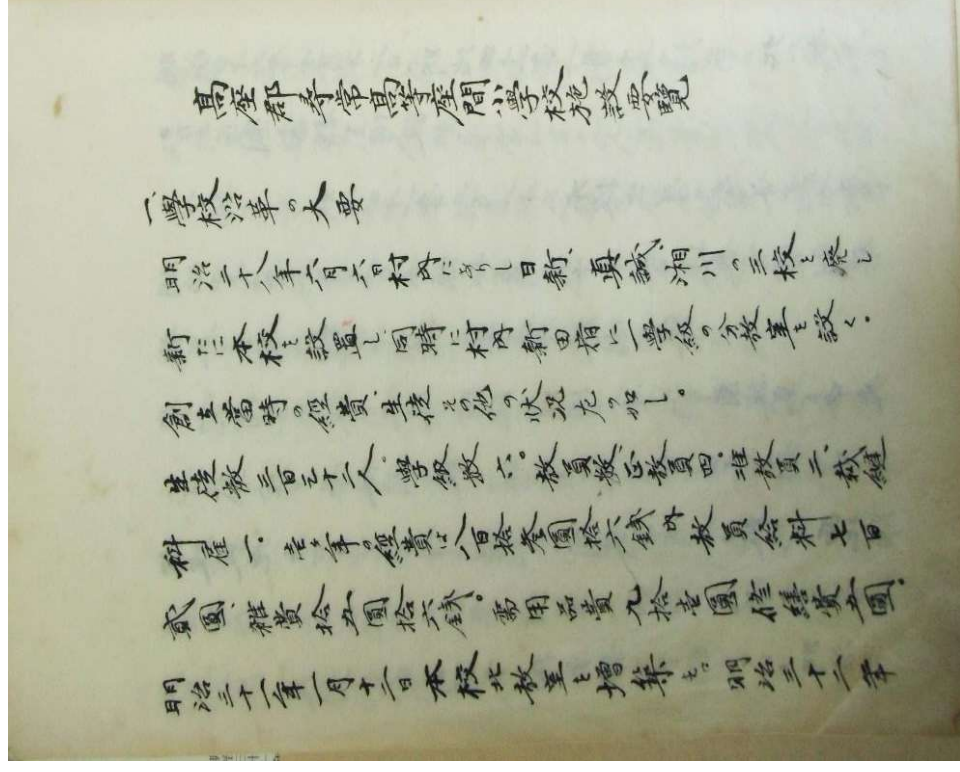 高座郡尋常高等座間小學校施設要覽
一、學校沿革の大要
明治二十八年六月六日村内にありし日新、真誠、湘川の三校を廃し
新たに本校を設置し同時に村内新田宿に一學級の分教室を設く。
創立當時の經費、生徒その他の状况左の如し。
生徒数三百三十二人、學級数六。教員数正教員四、准教員二、裁縫
科雇一。壱ヶ年の經費は八百拾参圓拾六錢内教員給料七百
貳圓、雑費拾五圓拾六錢。需用品費九拾壱圓修繕費五圓。
明治三十一年一月十二日本校北教室を増築す。明治三十二年